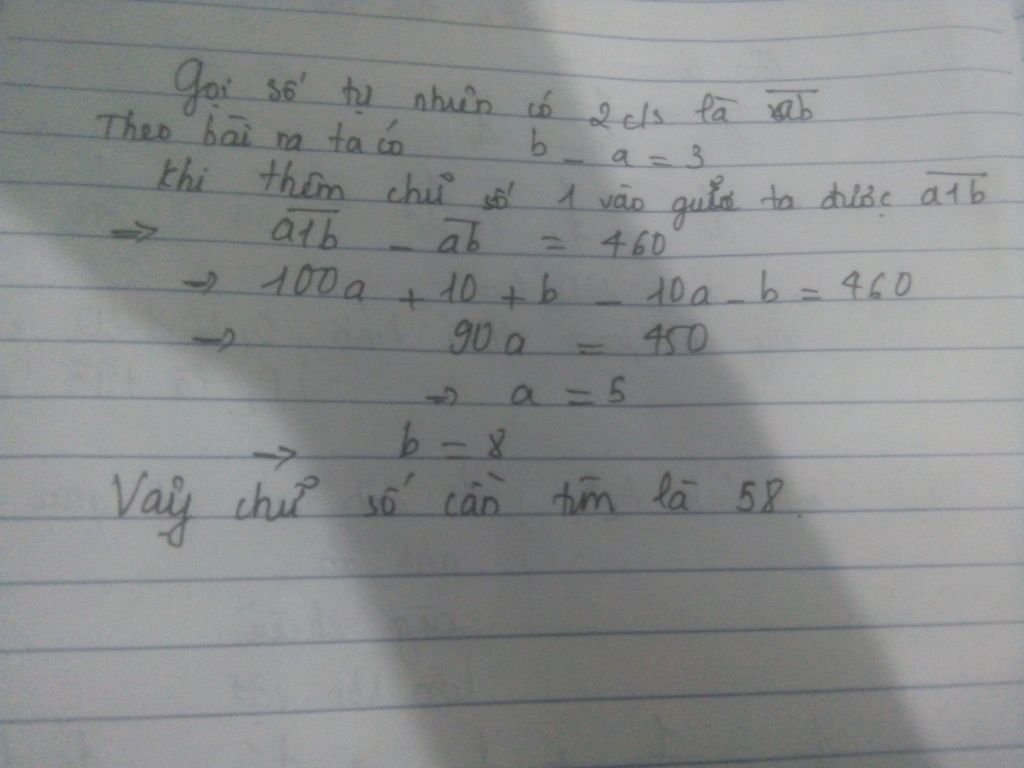 Gọi số tự nhiên có 2 c/s là a̅b̅
Theo bài ra ta có b - a = 3
Khi thêm chữ số 1 vào giữa ta được a̅1̅b̅
⇒ a̅1̅b̅ - a̅b̅ = 460
→ 100a + 10 + b - 10a - b = 460
→ 90a = 450
⇒ a = 5
→ b = 8
Vậy chữ số cần tìm là 58.